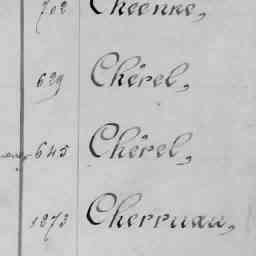 702 Cheenne,
629 Chérel,
645 Chérel,
1873 Cherruau,